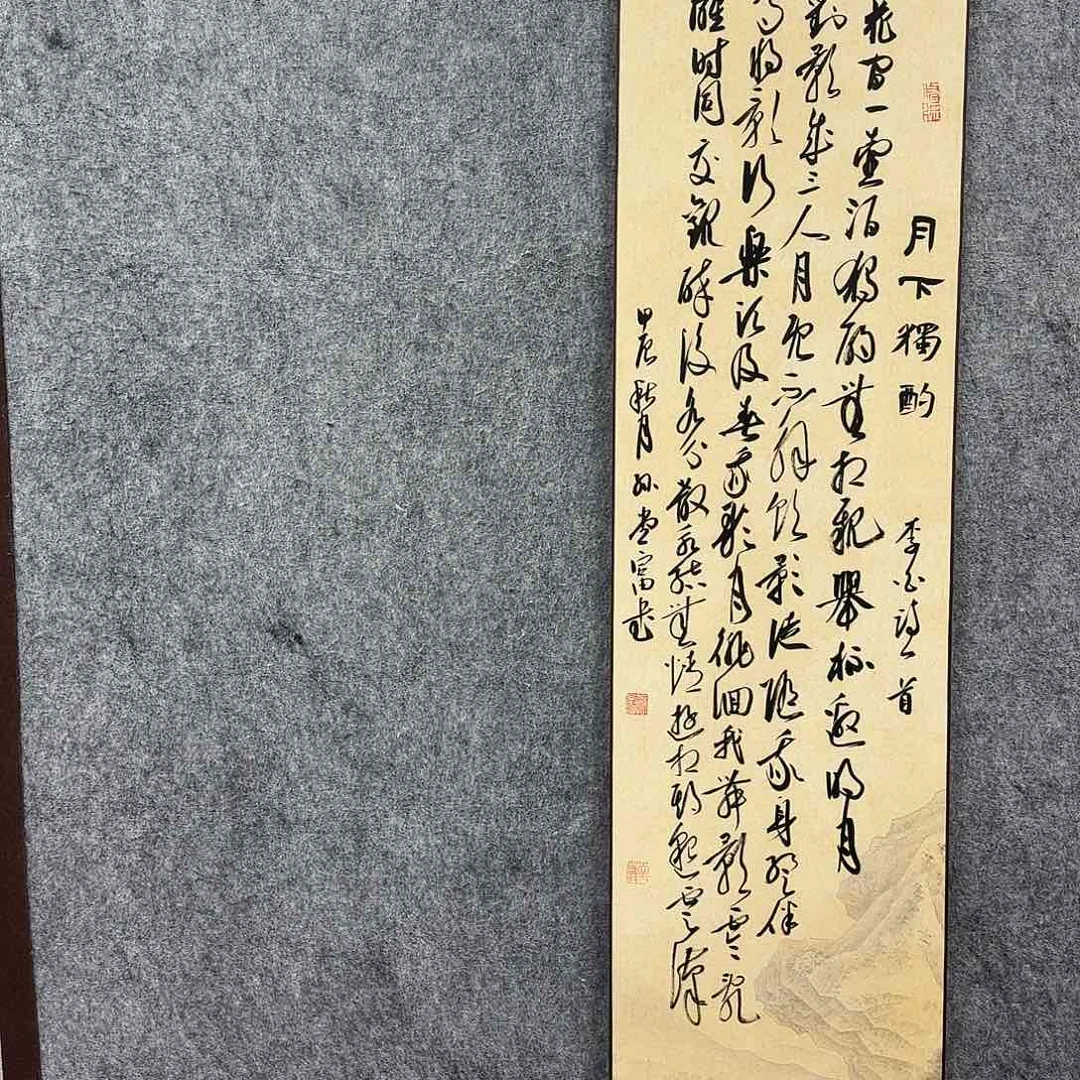 月下獨酌 李白詩一首
花間一壺酒獨酌無相親舉杯邀明月
對影成三人月既不解飲影徒隨我身暫伴
月將影行樂須及春我歌月徘徊我舞影零亂
醒时同交歡醉後各分散永結無情遊相期邈雲漢
甲辰秋月孙堂富书